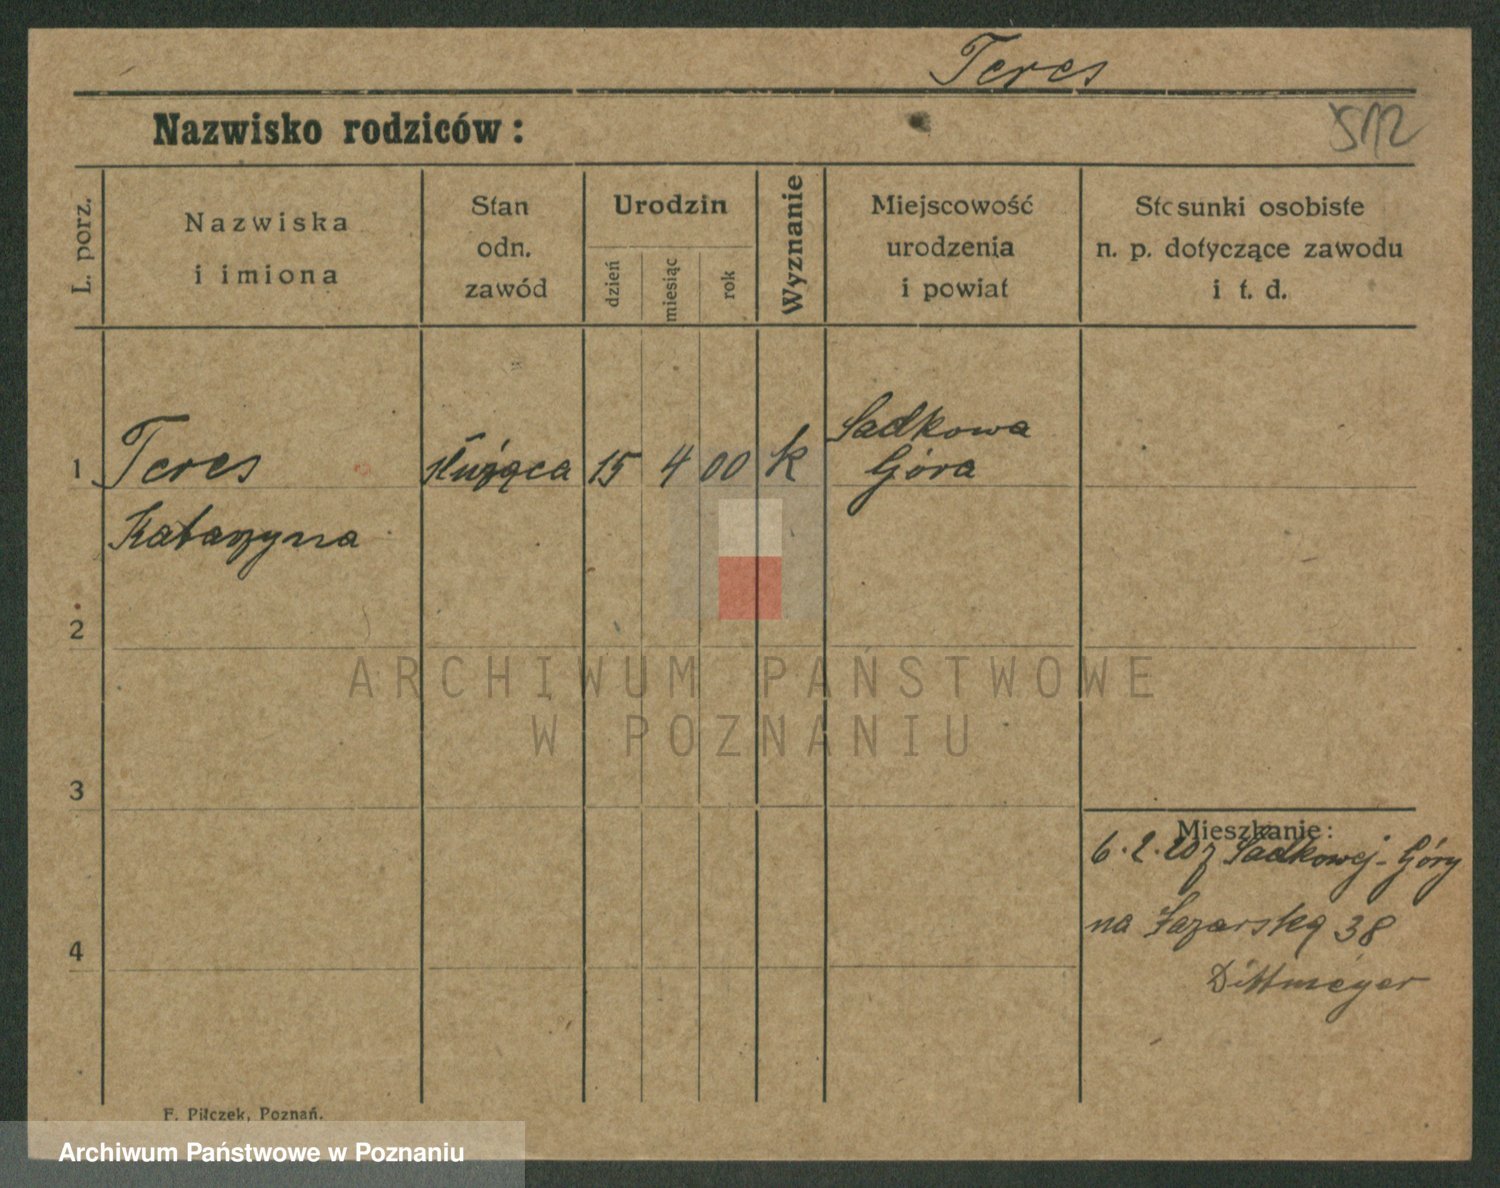 Teres
Nazwisko rodziców:
512
L. porz.
Nazwiska
i imiona
Stan
odn.
zawód
Urodzin
dzień
miesiąc
rok
Wyznanie
Miejscowość
urodzenia
i powiat
Stosunki osobiste
n. p. dotyczące zawodu
i t. d.
1 Teres służąca 15 4 00 k Sadkowa
Góra
Katarzyna
2
ARCHIWUM PAŃSTWOWE
W POZNANIU
3
Mieszkanie:
6.2.20 z Sadkowej-Góry
na Łazarską 38
4
Dittmeyer
F. Pilczek, Poznań.
Archiwum Państwowe w Poznaniu